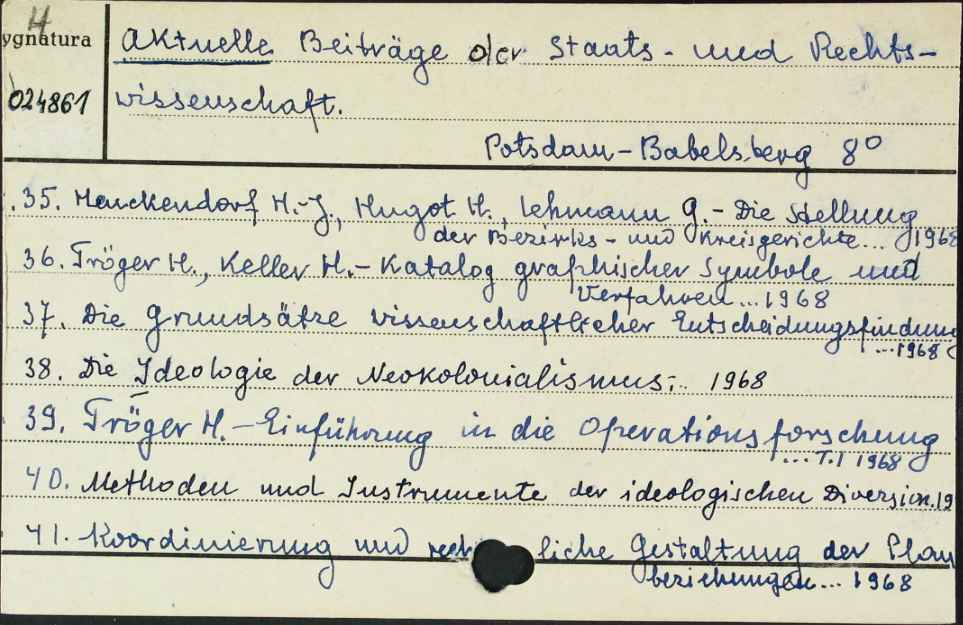 H
ygnatura
024861
Aktuelle Beiträge der Staats- und Rechts-
wissenschaft.
Potsdam-Babelsberg 8°
35. Menckendorf H.-J., Hugot H., Lehmann G.- Die Stellung
der Bezirks- und Kreisgerichte... 1968
36. Tröger H., Keller H.- Katalog graphischer Symbole und
Verfahren...1968
37. Die Grundsätze wissenschaftlicher Entscheidungsfindung
...1968
38. Die Ideologie der Neokolonialismus... 1968
39. Tröger H.- Einführung in die Operationsforschung
...T.1 1968
40. Methoden und Instrumente der ideologischen Diversion.19
41. Koordinierung und rech liche Gestaltung der Plan
beziehungen... 1968